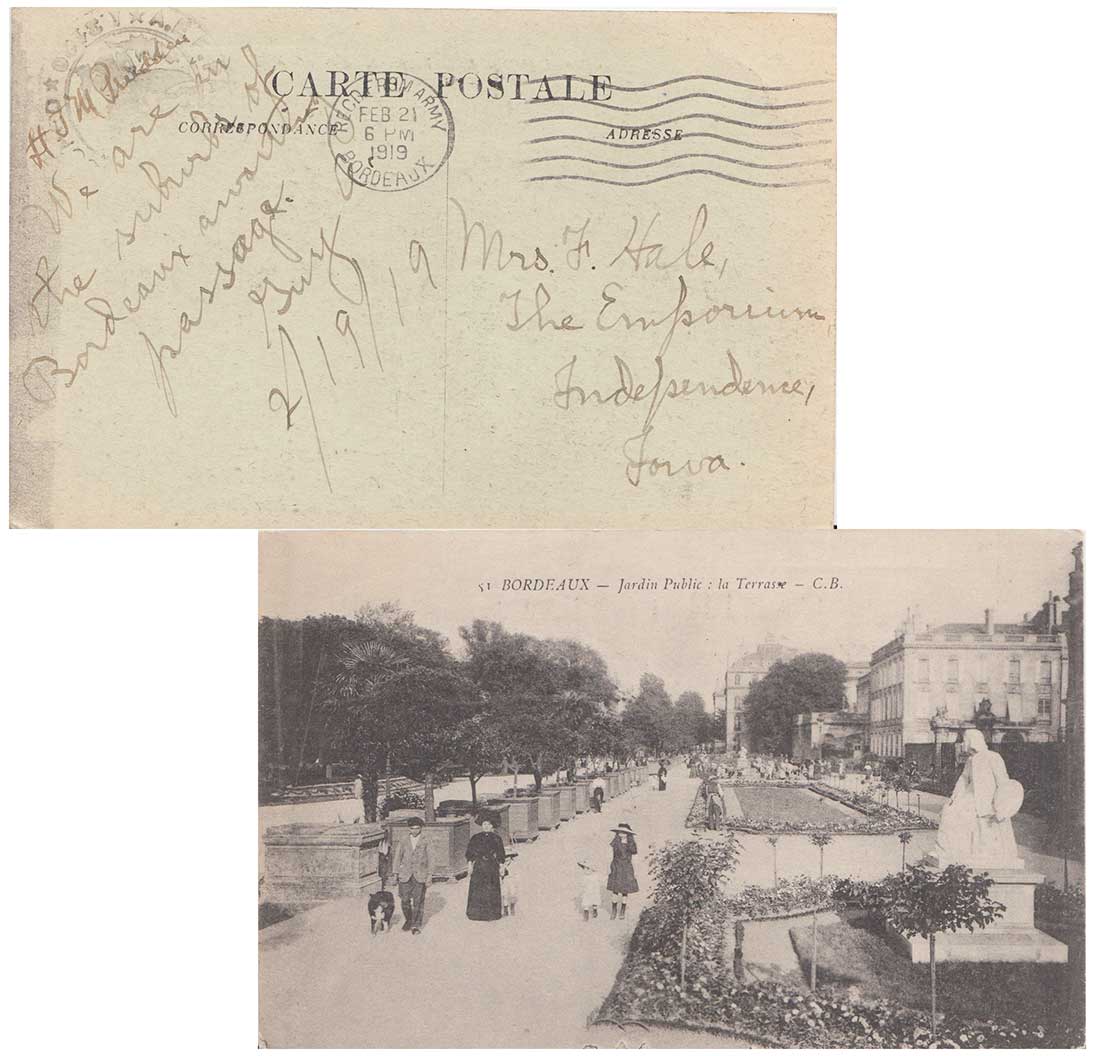 CARTE POSTALE
CORRESPONDANCE
ADRESSE
REC'D FROM ARMY
FEB 21
6 PM
1919
BORDEAUX
We are in
the suburbs of
Bordeaux awaiting
passage.
Guy
2/19/19
Mrs. F. Hale,
The Emporium,
Independence,
Iowa.
51 BORDEAUX — Jardin Public : la Terrasse — C.B.